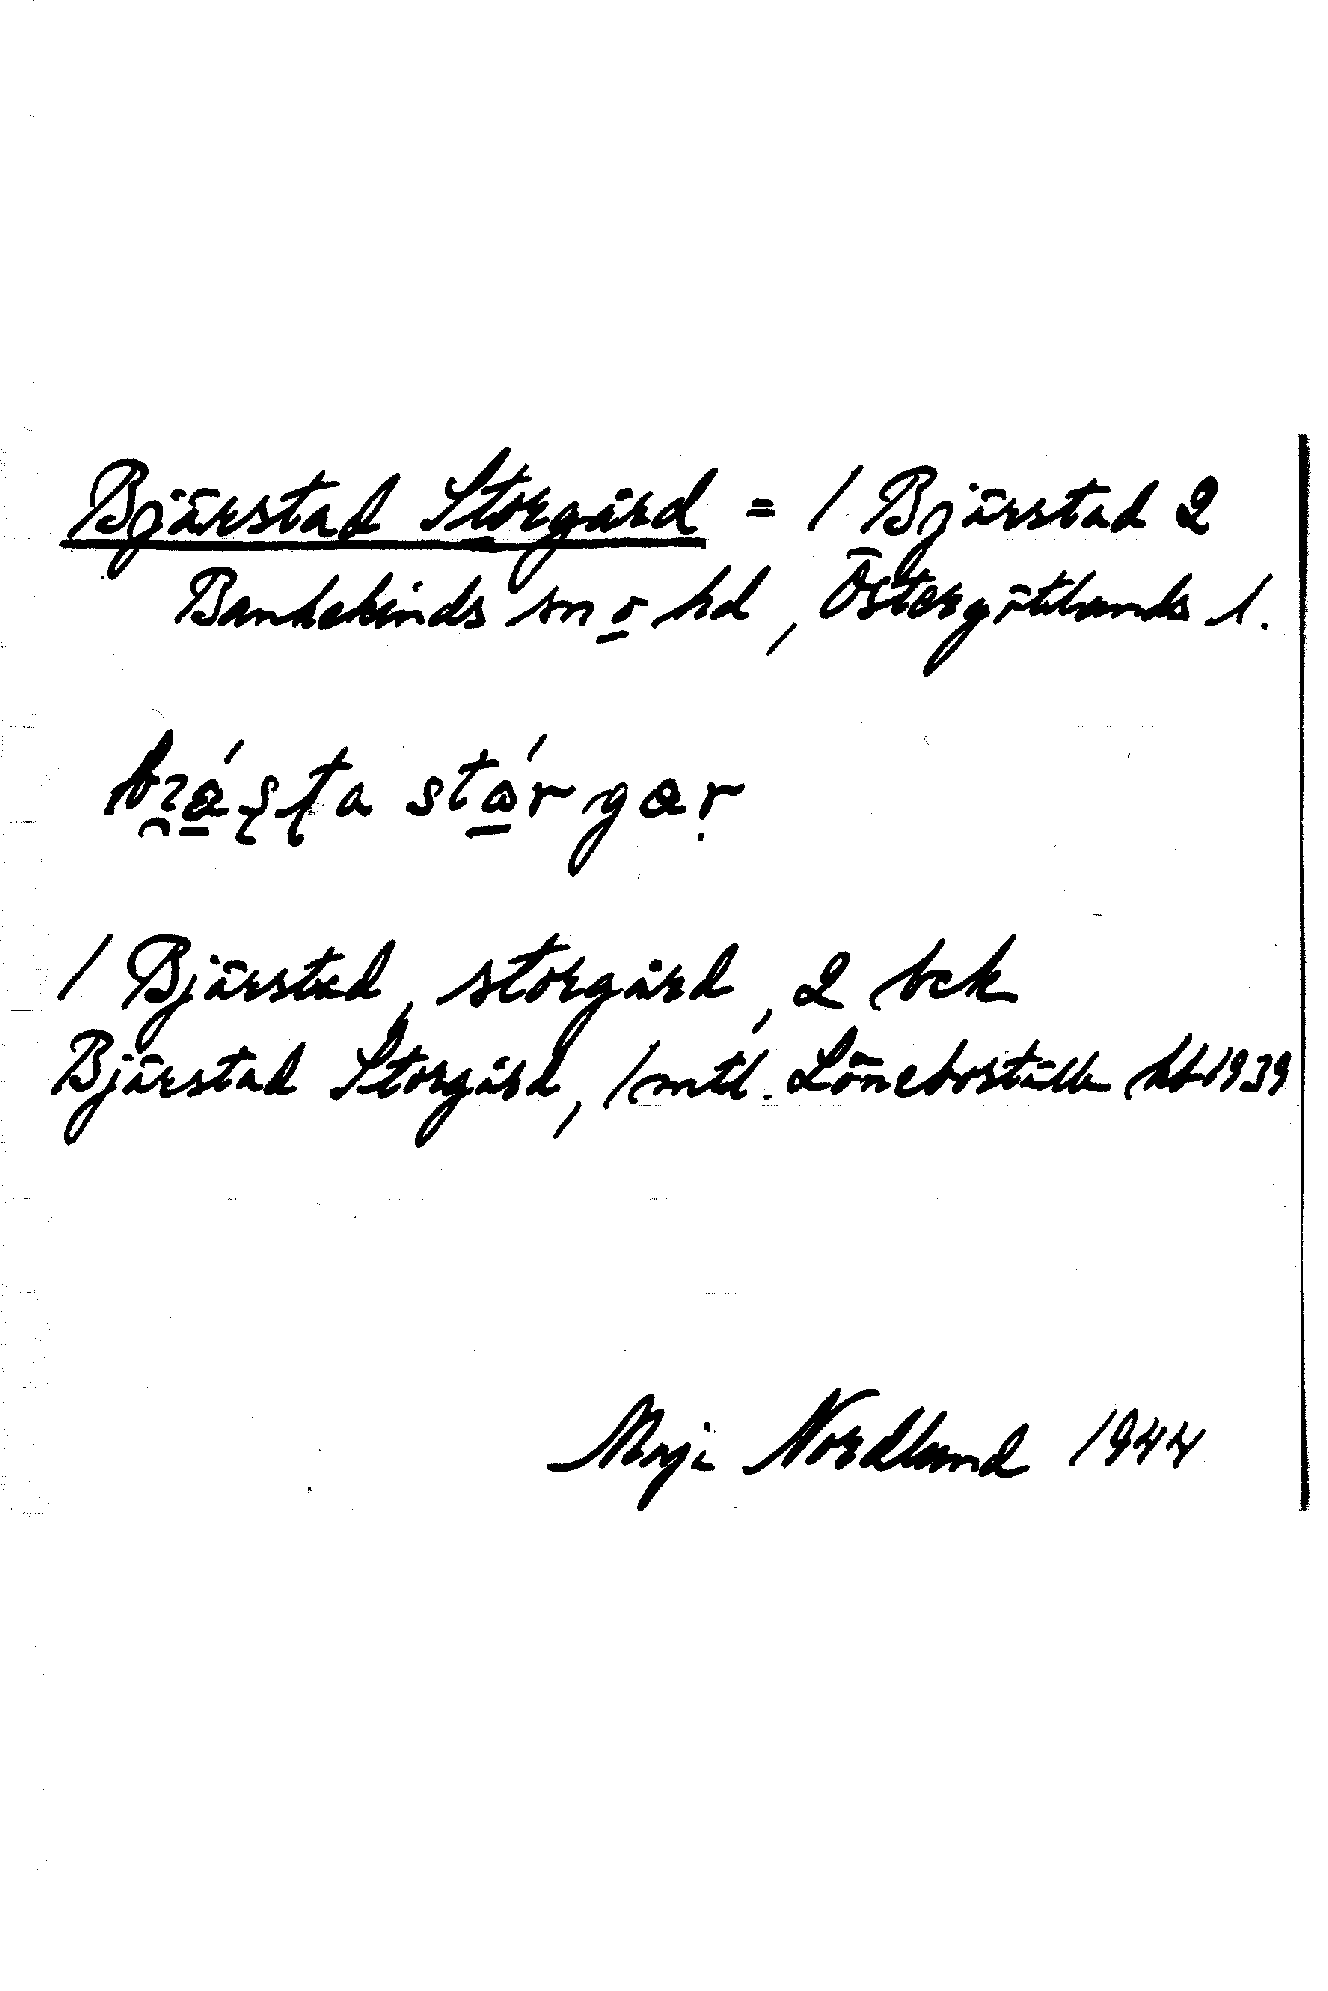 Bjärstad Storgård = 1 Bjärstad 2
Bankekinds sn o hd, Östergötlands l.
stárgar
1 Bjärstad, storgård, 2 bck
Bjärstad Storgård, 1 mtl. Löneboställe hb 1939
Maja Nordlund 1944